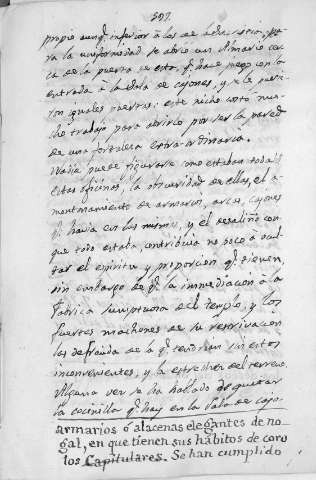 597.
propio aunq.e inferior à los de
ra la uniformidad se abrio un Almario cer-
ca de la puerta de esta, q.e hace juego con la
entrada à la Sala de cajones, y se le pusie-
ron iguales puertas: este nicho costó mu-
cho trabajo para abrirlo por ser la pared
de una fortaleza extra-ordinaria.
Nadie puede figurarse como estaban todas
estas oficinas, la obscuridad de ellas, el a-
montonamiento de armarios, arcas, cajones
q.e havia en las mismas, y el desaliño con
que todo estaba, contribuia no poco à ocul-
tar el espiritu y proporcion q.e tienen,
sin embargo de q.e la inmediacion à la
Fabrica sumptuosa del templo, y los
fuertes machones de su
las defrauda de la q.e tendrian sin estos
inconvenientes, y la estrechez del terreno.
Alguna vez se ha hablado de quitar
la cocinilla q.e hay en la Sala de cajo-
armarios ó alacenas elegantes de no-
gal, en que tienen sus hábitos de coro
los Capitulares. Se han cumplido